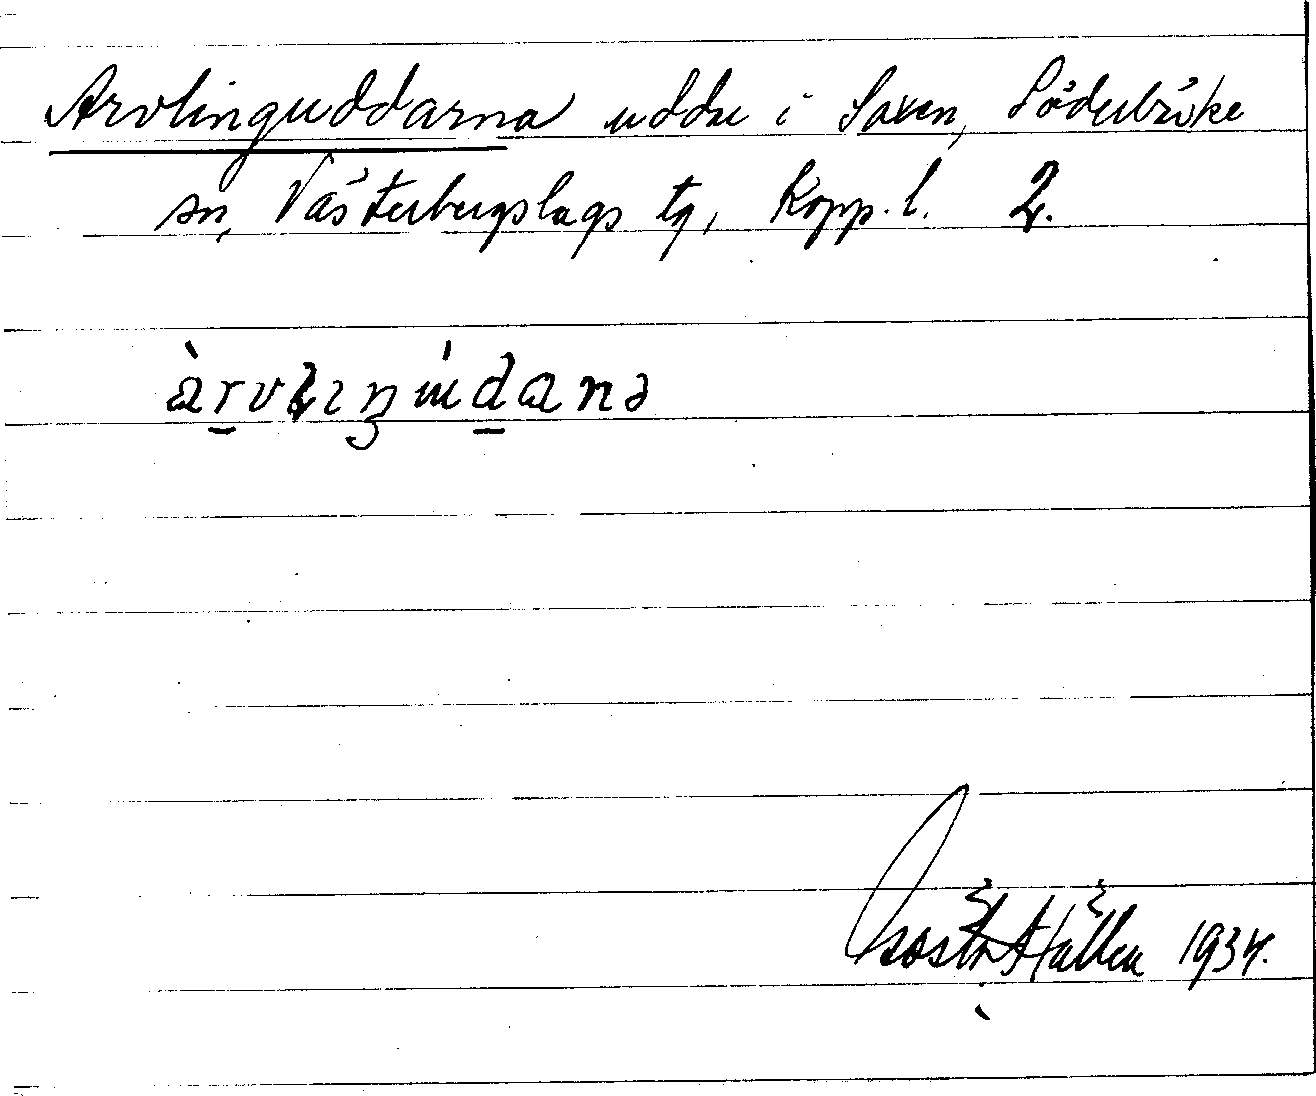 Arvlinguddarna uddar i Saxen, Söderbärke
sn, Västerbergslags tg, Kopp. l. 2.
àrvlıŋu̍dana
1934.